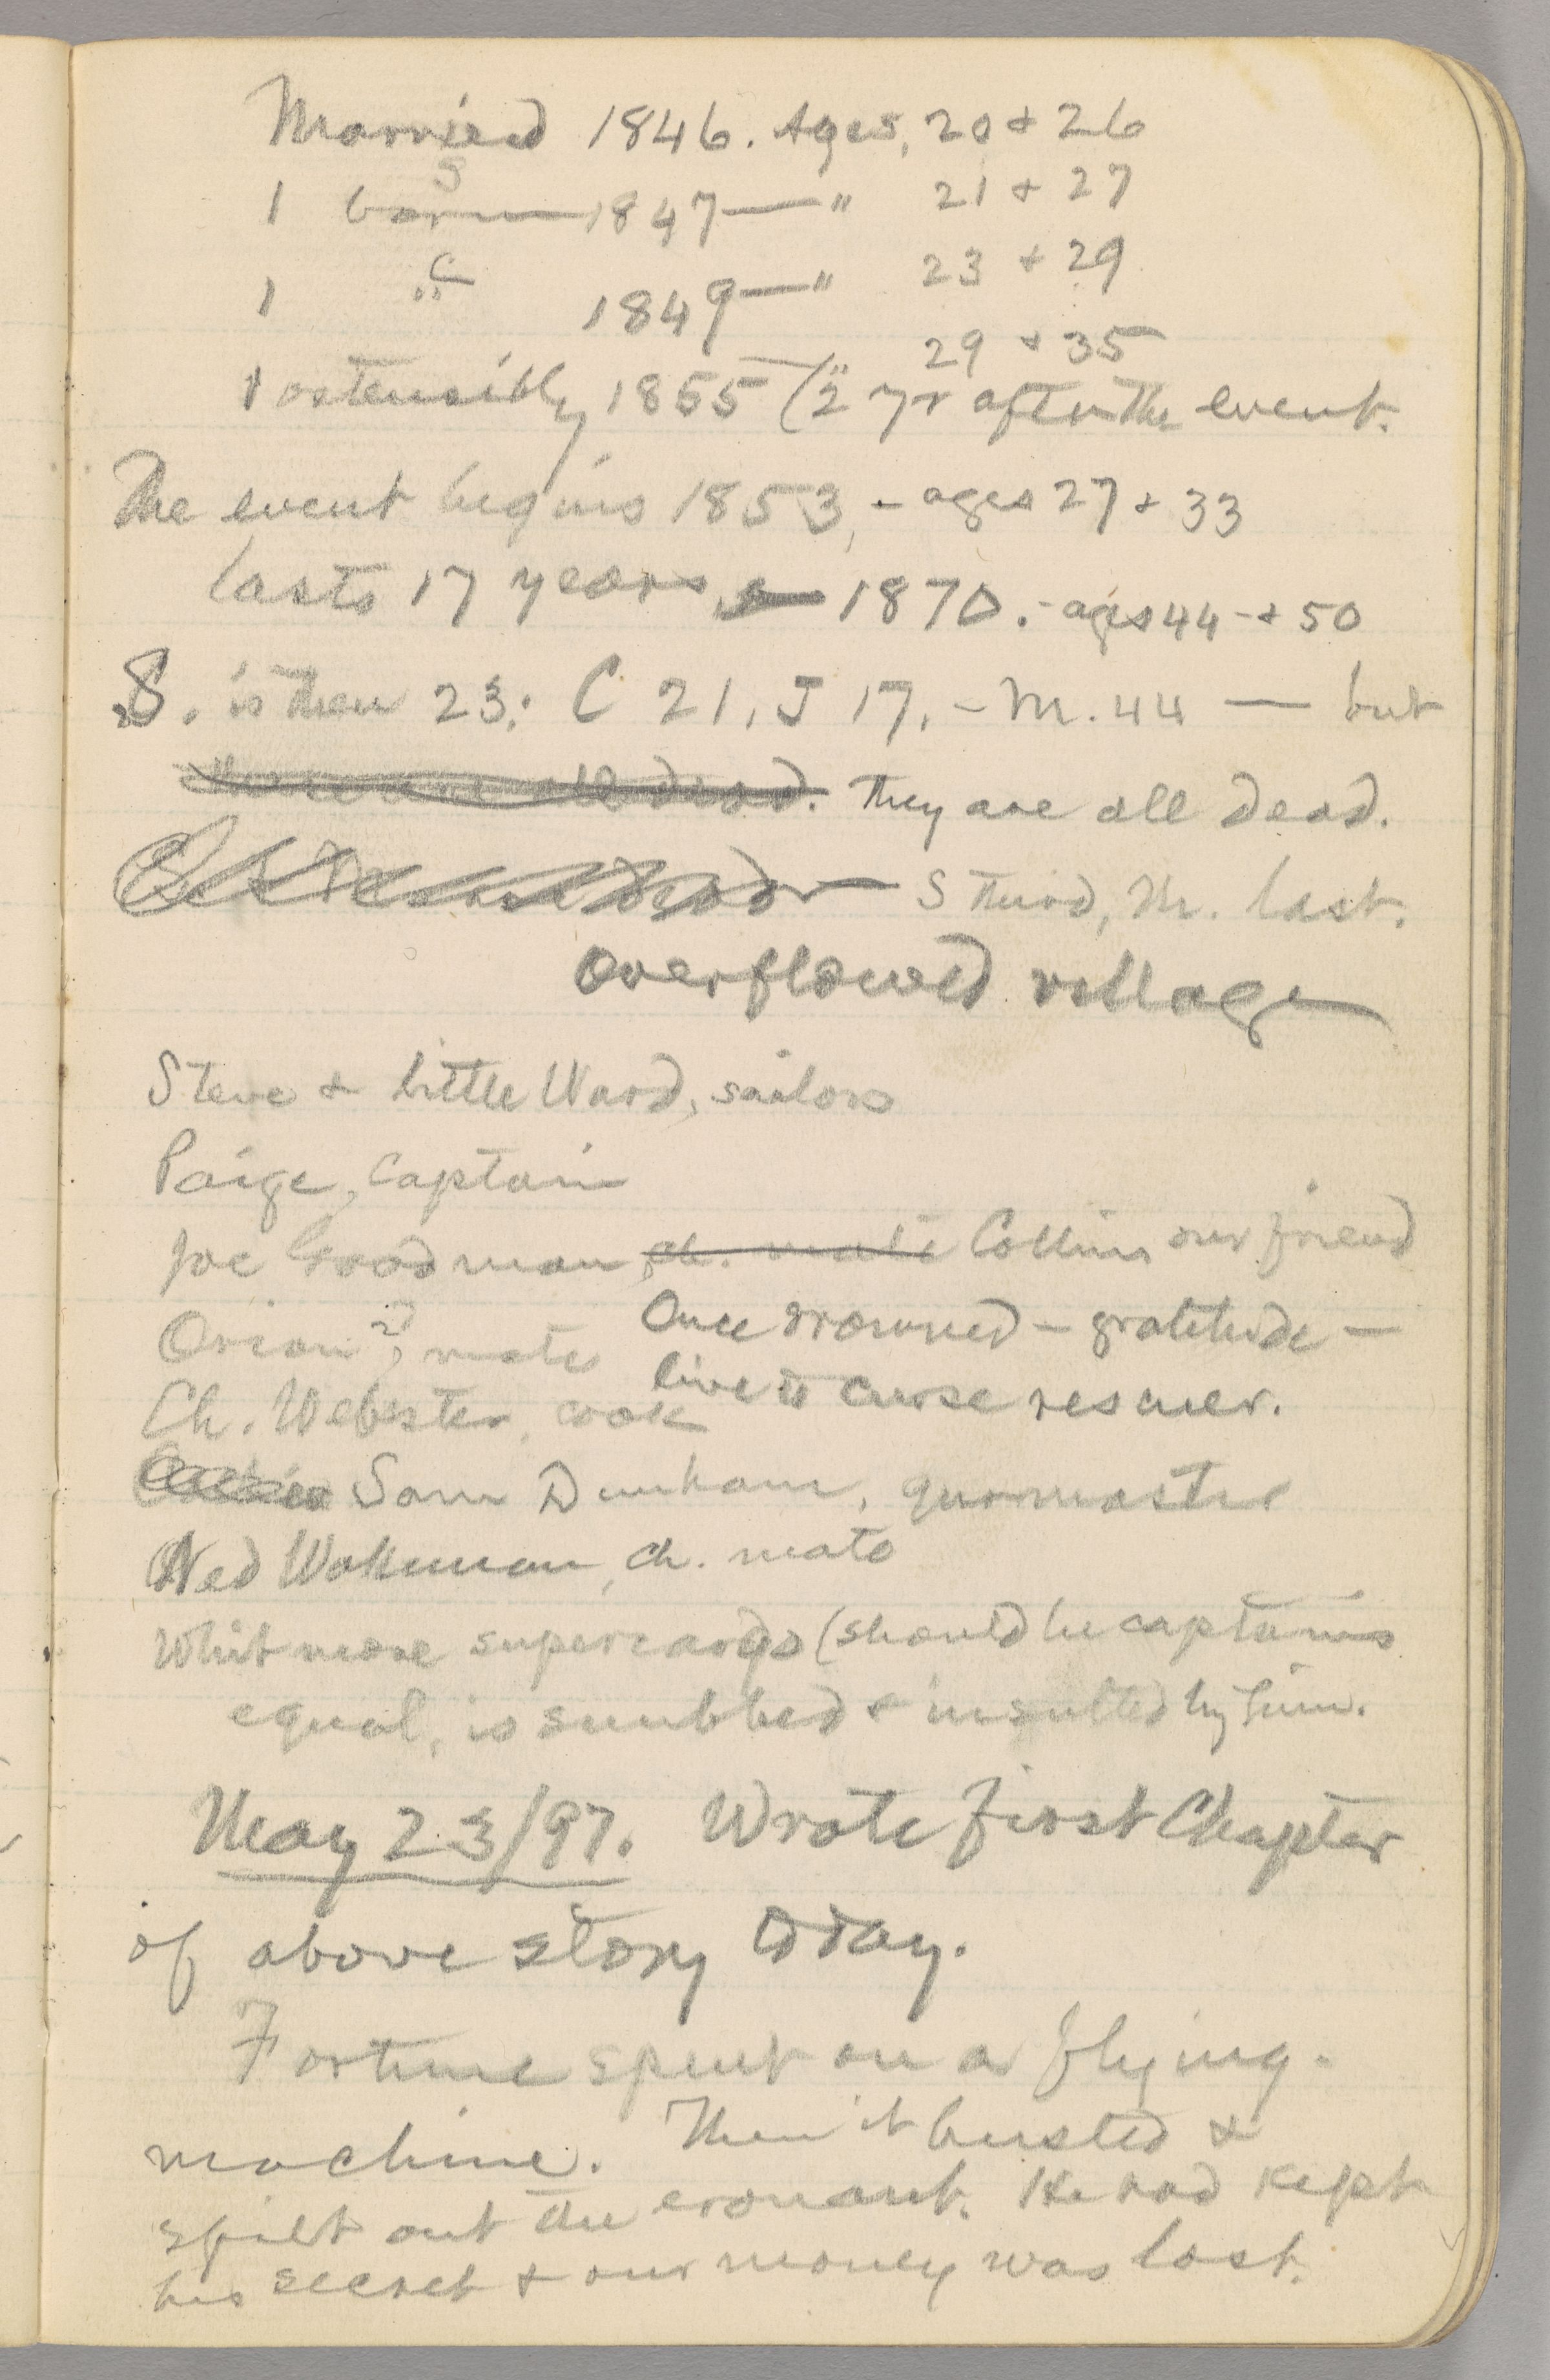 Married 1846. Ages, 20 + 26
S
1 born 1847 — " 21 + 27
C
1 " 1849 — " 23 + 29
" 29 + 35
1 ostensibly 1855 (2 yr after the event.
The event begins 1853, - ages 27 + 33
lasts 17 years, 1870. - ages 44 - + 50
S. is then 23; C 21, J 17, - M. 44 — but
these are all dead. They are all dead.
S third, M. last.
Overflowed village
Steve + Little Ward, sailors
Paige, Captain
Joe Goodman, ch. mate Collins our friend
Orion?, mate
Once drowned - gratitude -
live to curse rescuer.
Ch. Webster, cook
Sam Dunham, quarmaster
Ned Wakeman, ch. mate
Whitmore supercargo (should be captains
equal, is snubbed + insulted by him.
May 23/97. Wrote first Chapter
of above story today.
Fortune spent on a flying-
machine. Then it busted &
spilt out the eronaut. He had kept
his secret + our money was lost.